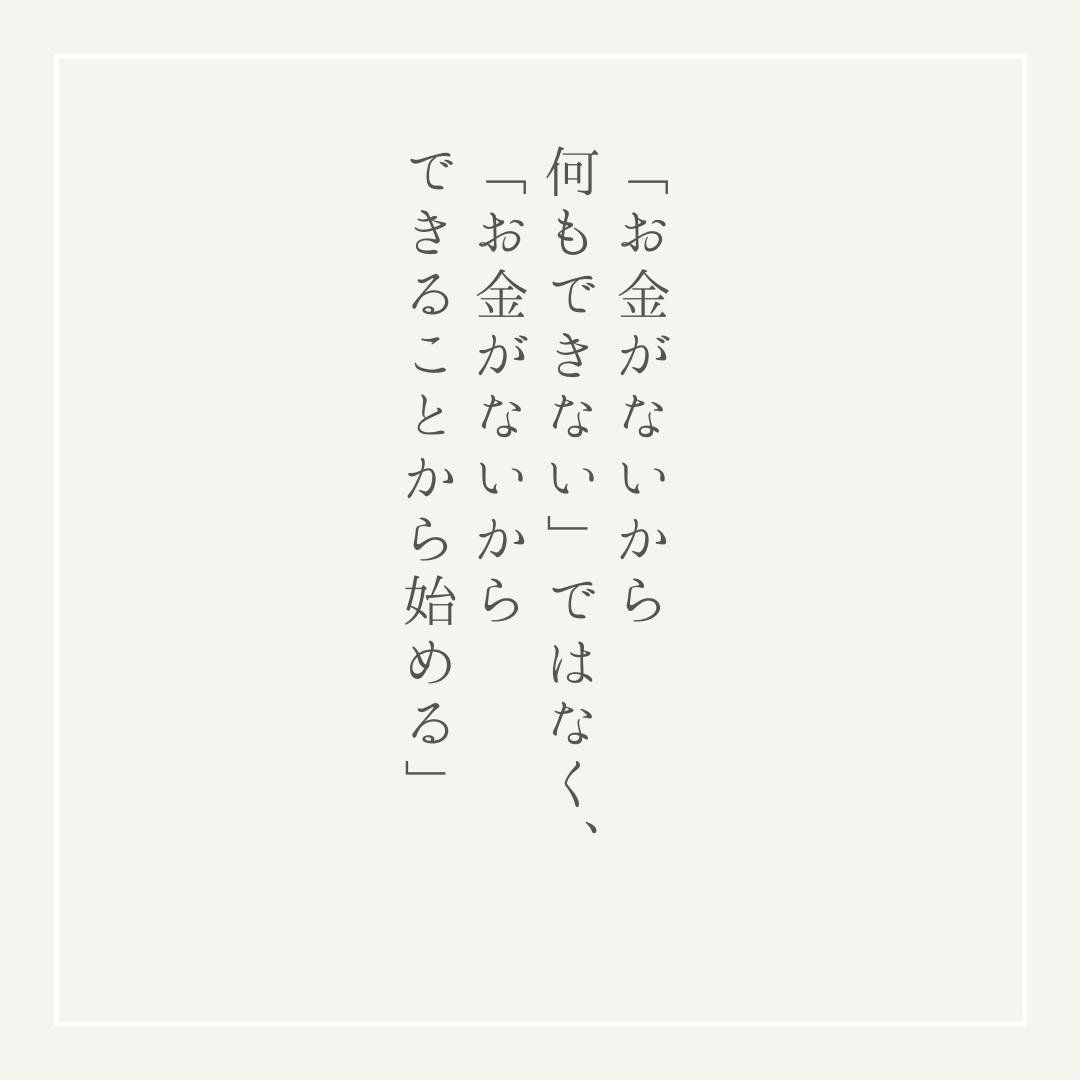 「お金がないから
何もできない」ではなく、
「お金がないから
できることから始める」